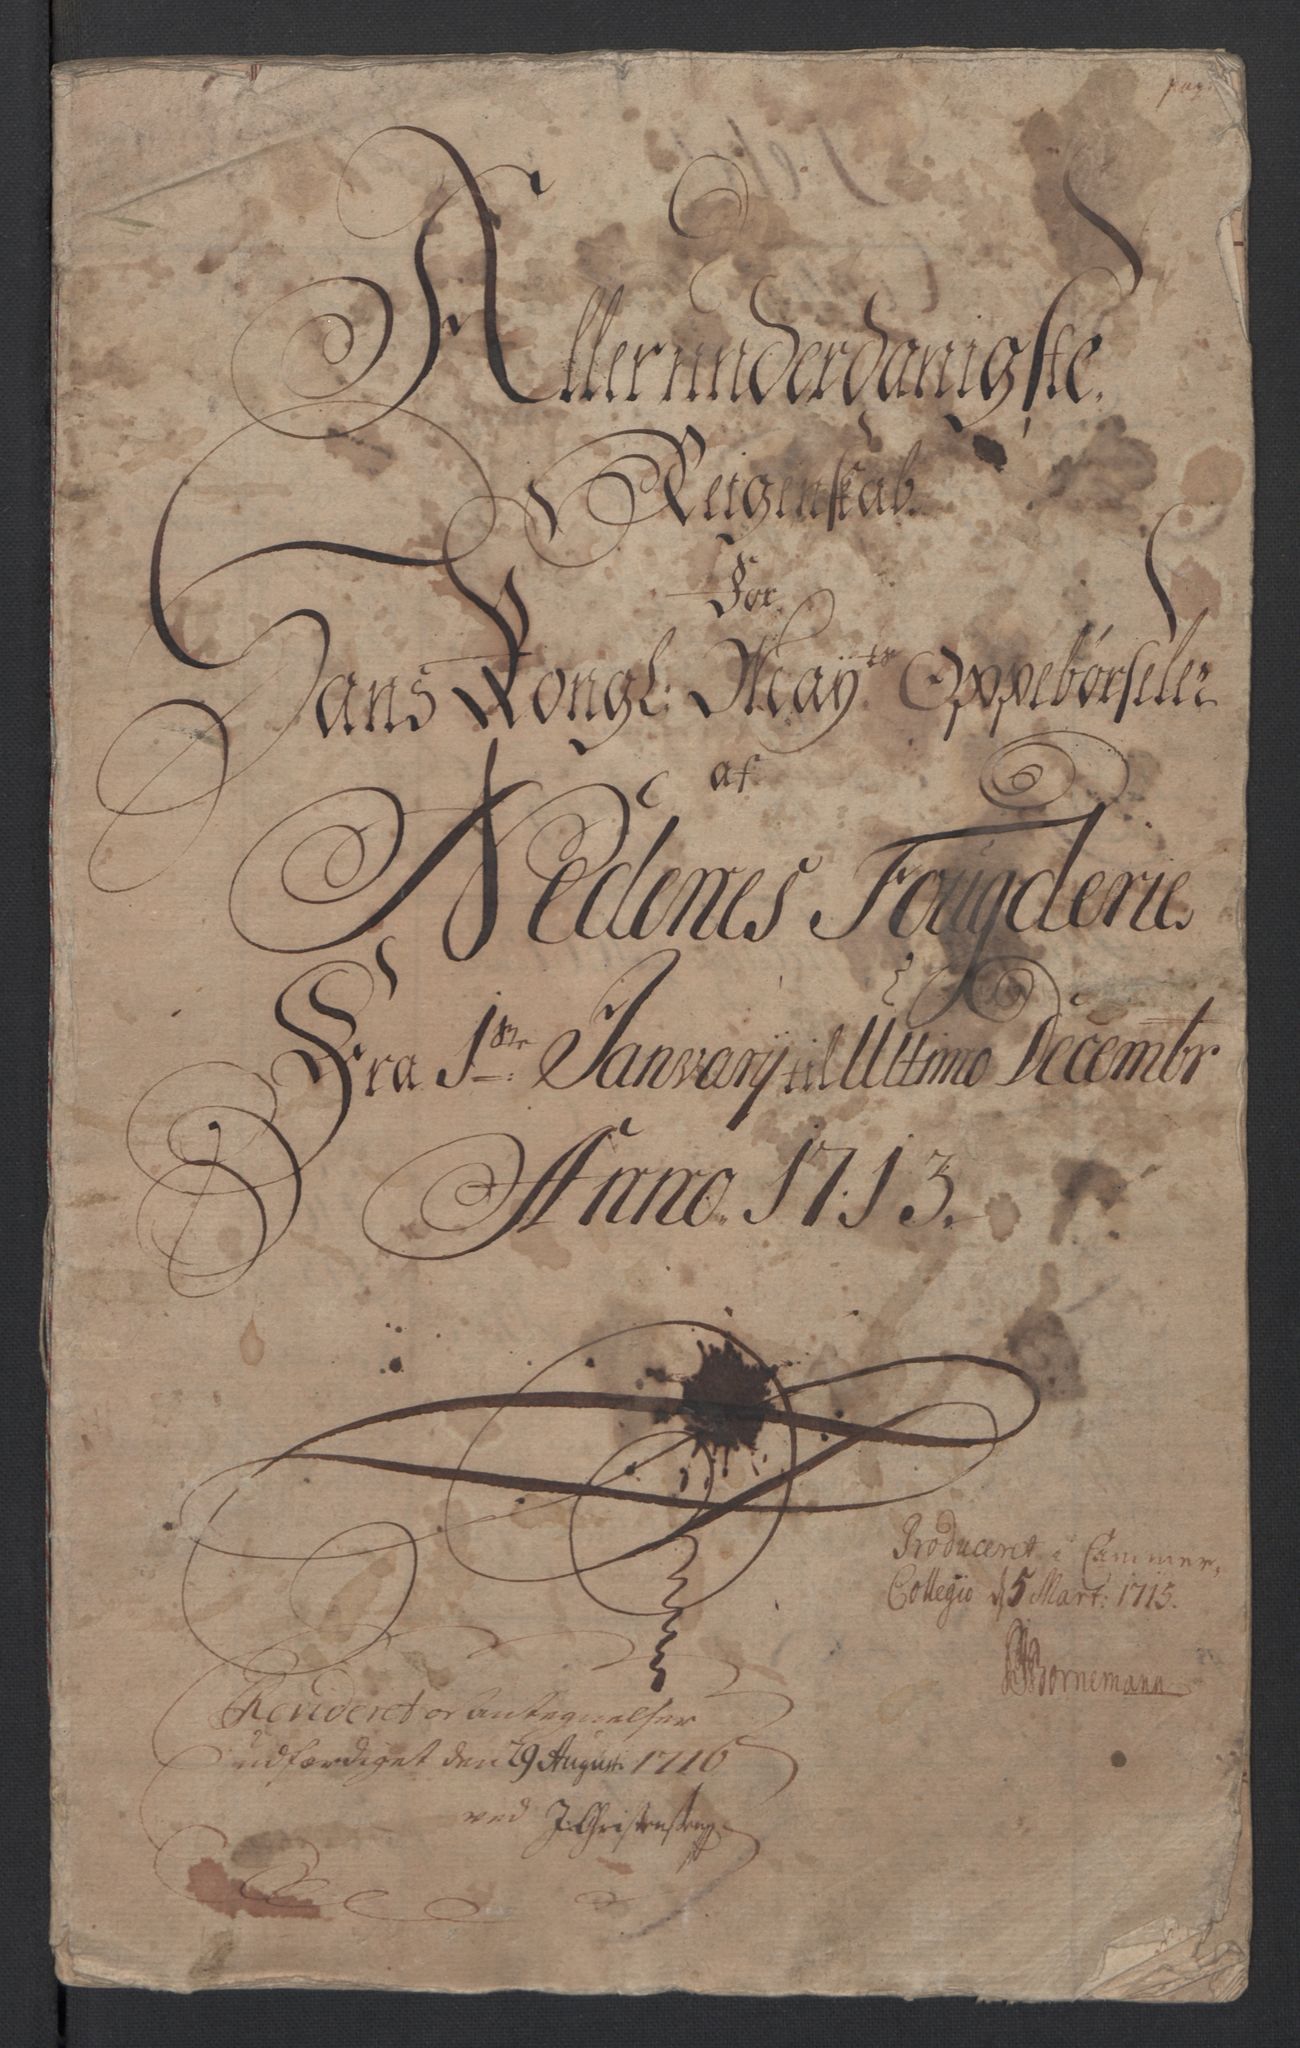 pag:
Allerunderdanigste
Reigenskab
For
Hans Kongl: Maÿts Oppebørseler
af
Nedenes Fougderie
Fra 1ste Janvarij til Ultimo Decembr
Anno 1713.
Produceret i Cammer,
Collegio d 5 Mart: 1715.
Bornemann
Revideret og antegnelser
udfærdiget den 29 August: 1716
ved J: Christensen